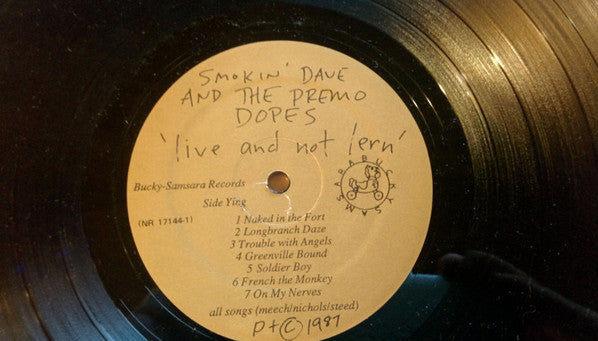 SMOKIN' DAVE
AND THE PREMO
DOPES
'live and not lern'
Bucky-Samsara Records
Side Ying
(NR 17144-1)
BUCKY SAMSARA
1 Naked in the Fort
2 Longbranch Daze
3 Trouble with Angels
4 Greenville Bound
5 Soldier Boy
6 French the Monkey
7 On My Nerves
all songs (meech/nichols/steed)
P+© 1987